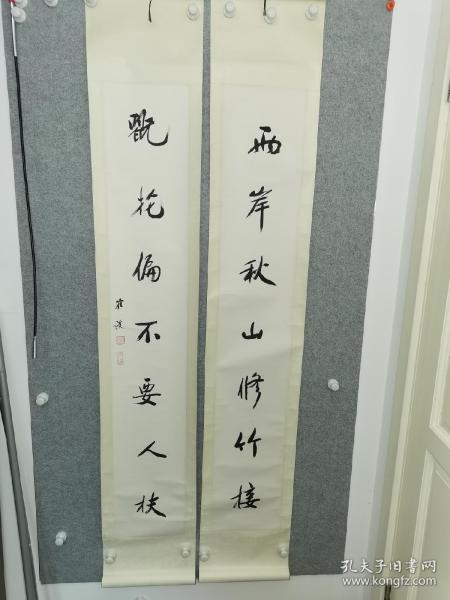 兩岸秋山修竹接
偏不要人扶
孔夫子旧书网
www.kongfz.com